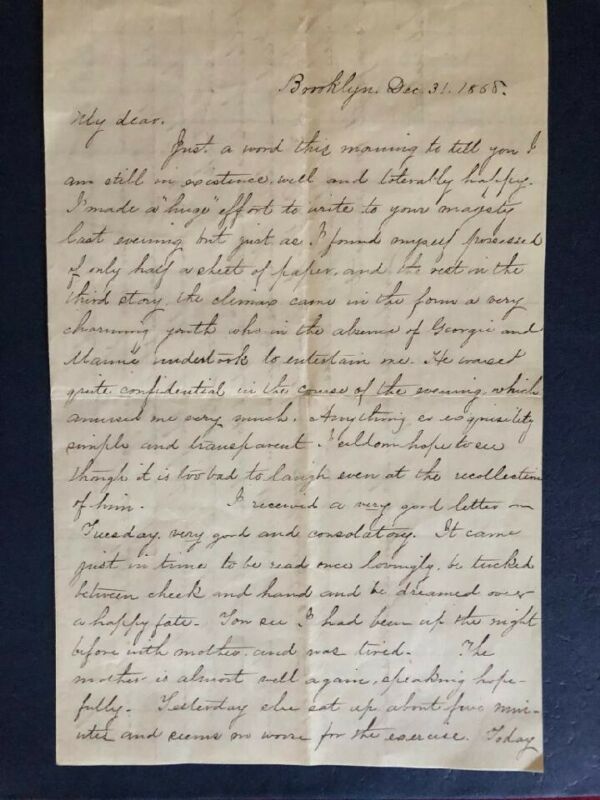 Brooklyn. Dec. 31. 1868.
My dear.
Just a word this morning to tell you I
am still in existence, well and tolerably happy.
I made a "huge" effort to write to your magesty
last evening but just as I found myself possessed
of only half a sheet of paper, and the rest in the
third story, the climax came in the form a very
charming youth who in the absence of Georgie and
Mamie undertook to entertain me. He waxed
quite confidential in the course of the evening, which
amused me very much. Anything so exquisitely
simple and transparent I seldom hope to see
though it is too bad to laugh even at the recollection
of him. I received a very good letter on
Tuesday, very good and consolatory. It came
just in time to be read once lovingly, be tucked
between cheek and hand and be dreamed over
a happy fate. You see I had been up the night
before with mother, and was tired. The
mother is almost well again, speaking hope-
fully. Yesterday she sat up about five min-
utes and seems no worse for the exercise. Today